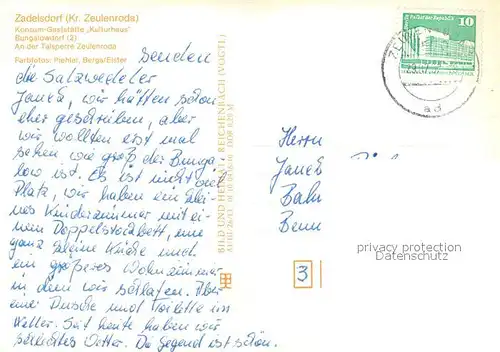 Zadelsdorf (Kr. Zeulenroda)
Konsum-Gaststätte „Kulturhaus"
Bungalowdorf (2)
An der Talsperre Zeulenroda
Farbfotos: Piehlat, Berga/Elster
senden
die Salzwedeler
wir hätten schon
eher geschrieben, aber
wir wollten erst mal
sehen, wie groß der Bunga
low ist. Es ist nicht
Platz, wir haben ein klei
nes Kinderzimmer mit ei
nem Doppelstockbett, eine
ganz kleine Küche und
ein größeres Wohnzimmer
in dem wir schlafen. Aber
eine Dusche und Toilette im
Keller. Seit heute haben wir
schlechtes Wetter. Die Gegend ist schön.
BILD UND HEIMAT REICHENBACH (VOGTL)
Palast der Republik
10
DDR
Herrn
3
privacy protection
Datenschutz